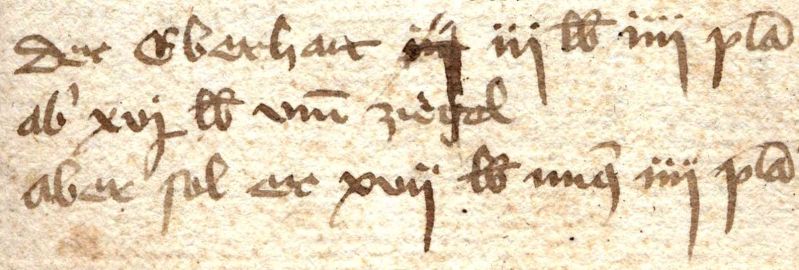 Der Eberhart iii lb iiii pla
ab' xvj lb vm̄ ziegel
aber sol er xvij lb minꝰ iiij pla